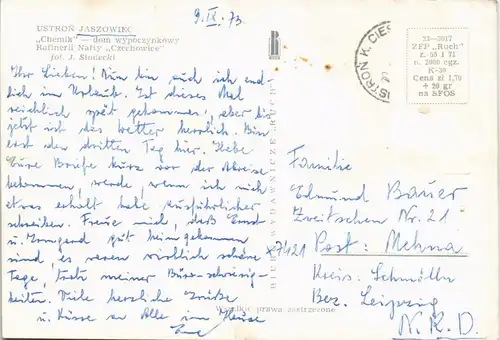 9. IX. 73
USTROŃ JASZOWIEC
„Chemik" — dom wypoczynkowy
Rafinerii Nafty „Czechowice"
fot. J. Siudecki
Ihr Lieben! Nun bin auch ich end-
lich im Urlaub. Ist dieses Mal
reichlich spät gekommen, aber bis
jetzt ist das Wetter herrlich. Bin
erst den dritten Tag hier. Habe
Eure Briefe kurz vor der Abreise
bekommen, werde, wenn ich mich
etwas erholt habe ausführlicher
schreiben. Freue mich, daß Ernst
u. Irmgard gut heimgekommen
sind, es waren wirklich schöne
Tage, trotz meiner Büro-schwierig-
keiten. Viele herzliche Grüße
u. Küsse an Alle im Hause
BIURO WYDAWNICZE „RUCH"
USTROŃ K. CIES
23-3017
ZFP „Ruch"
z. 55 i 71
n. 2000 egz.
K-30
Cena zł 1,70
+ 20 gr
na SFOS
Familie
Edmund Bauer
Zweitschen Nr. 21
x7421 Post: Mehna
Kreis. Schmölln
Bez. Leipzig
N.R.D.
Wszelkie prawa zastrzeżone